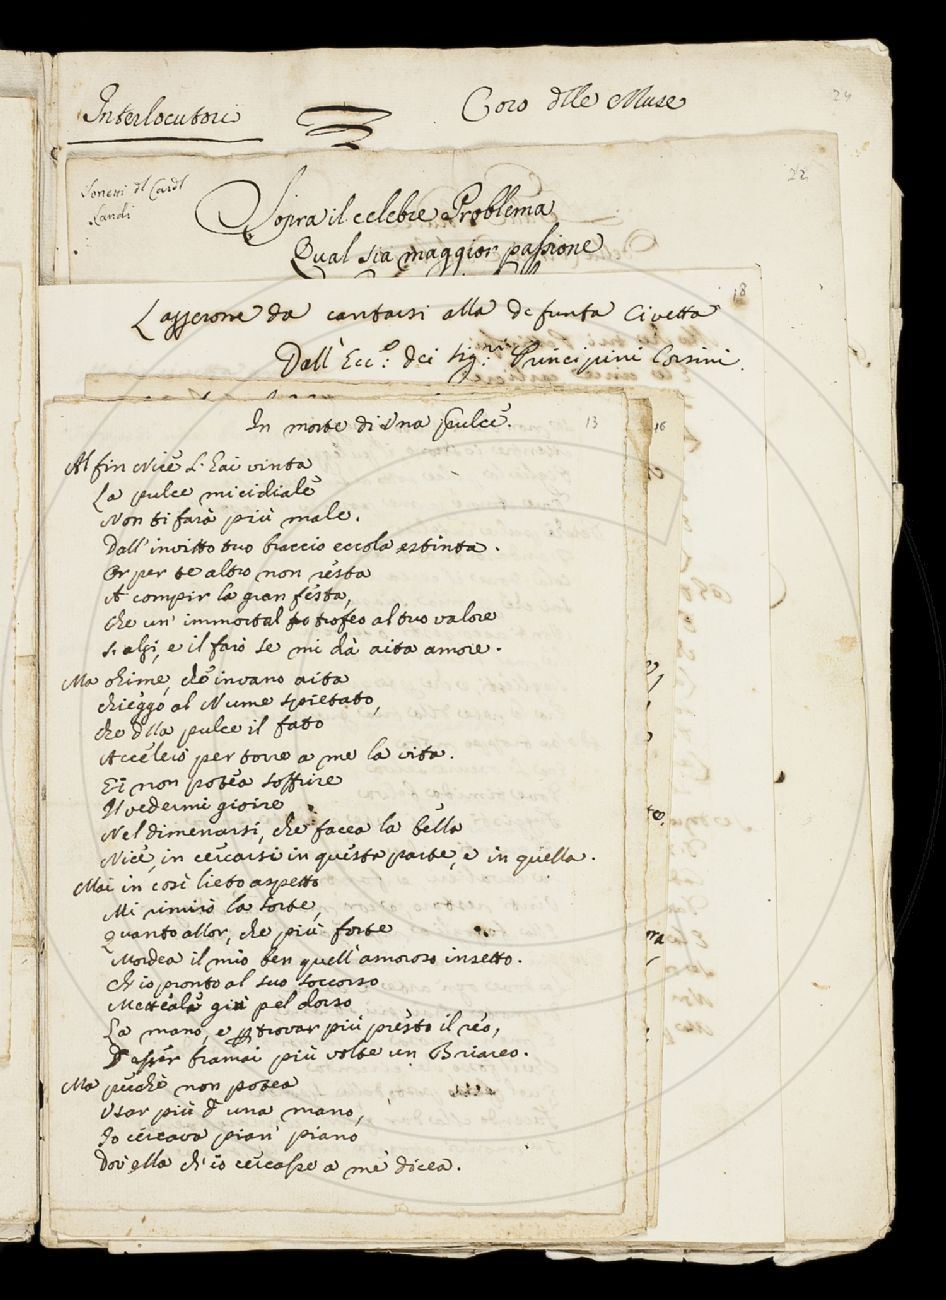 24
Interlocutori
Coro dlle Muse
22
Sonetti dl Cardl
Landi
Sopra il celebre Problema
Qual sia maggior passione
18
da cantarsi alla defunta Civetta
Dall' Ecc.o: dei Sig.ri: Principini Corsini.
In morte di Una pulce.
13
16
Al fin Nice l'hai vinta
La pulce micidiale
Non ti farà più male.
Dall' invitto tuo braccio eccola estinta.
Or per te altro non resta
A compir la gran festa,
Che un' immortal trofeo al tuo valore
S'alzi, e il farò se mi dà aita amore.
Ma ohime, che invano aita
Chieggo al Nume spietato,
Che dlla pulce il fato
Accelerò per torre a me la vita.
Ei non potea soffrire
Il vedermi gioire
Nel dimenarsi, che facea la bella
Nice, in cercarsi in questa parte, e in quella.
Mai in così lieto aspetto
Mi rimirò la sorte,
Quanto allor, che più forte
Mordea il mio ben quell' amoroso insetto.
Ch'io pronto al suo soccorso
Metteale giù pel dorso
La mano, e p trovar più presto il reo,
D'esser bramai più volte un Briareo.
Ma perchè non potea
Usar più d' una mano,
Io cercava pian' piano
Dov' ella ch' io cercasse a me dicea.